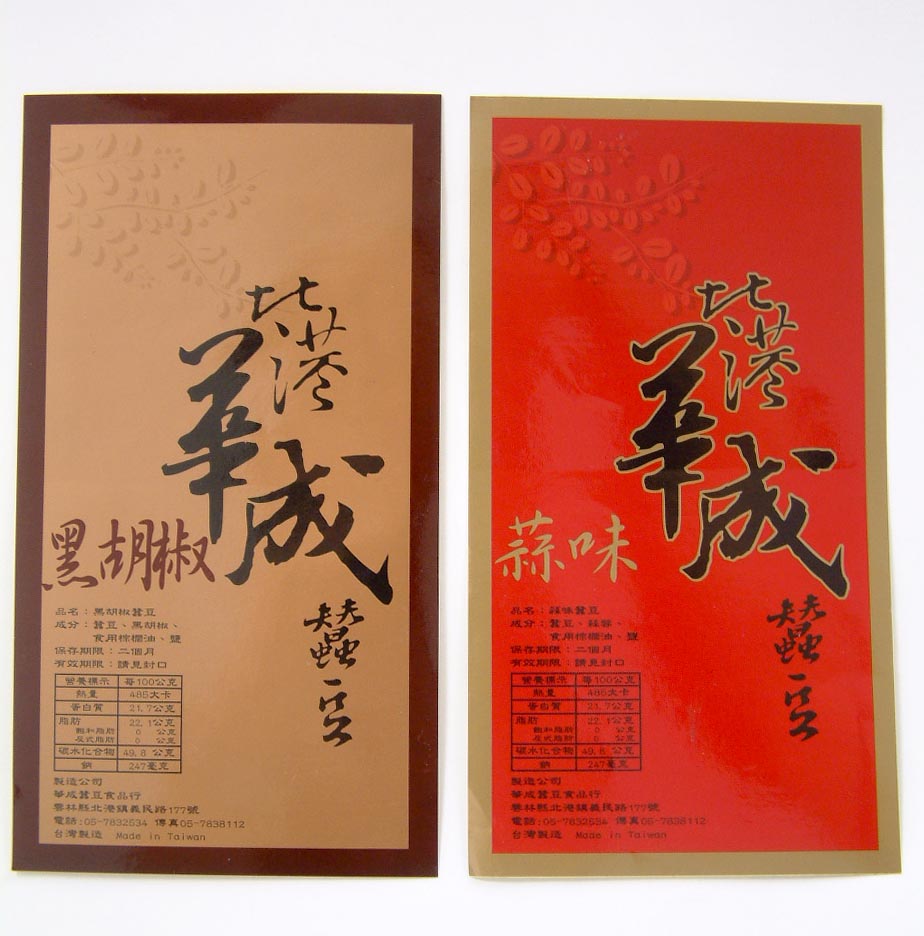 北港
華成
蠶豆
黑胡椒
品名：黑胡椒蠶豆
成分：蠶豆、黑胡椒、
食用棕櫚油、鹽
保存期限：二個月
有效期限：請見封口
營養標示 每100公克
熱量 485大卡
蛋白質 21.7公克
脂肪 22.1公克
飽和脂肪 0 公克
反式脂肪 0 公克
碳水化合物 49.8 公克
鈉 247毫克
製造公司
華成蠶豆食品行
雲林縣北港鎮義民路177號
電話:05-7832534 傳真05-7838112
台灣製造 Made in Taiwan
北港
華成
蠶豆
蒜味
品名：蒜味蠶豆
成分：蠶豆、蒜蓉、
食用棕櫚油、鹽
保存期限：二個月
有效期限：請見封口
營養標示 每100公克
熱量 485大卡
蛋白質 21.7公克
脂肪 22.1公克
飽和脂肪 0 公克
反式脂肪 0 公克
碳水化合物 49.8 公克
鈉 247毫克
製造公司
華成蠶豆食品行
雲林縣北港鎮義民路177號
電話:05-7832534 傳真05-7838112
台灣製造 Made in Taiwan